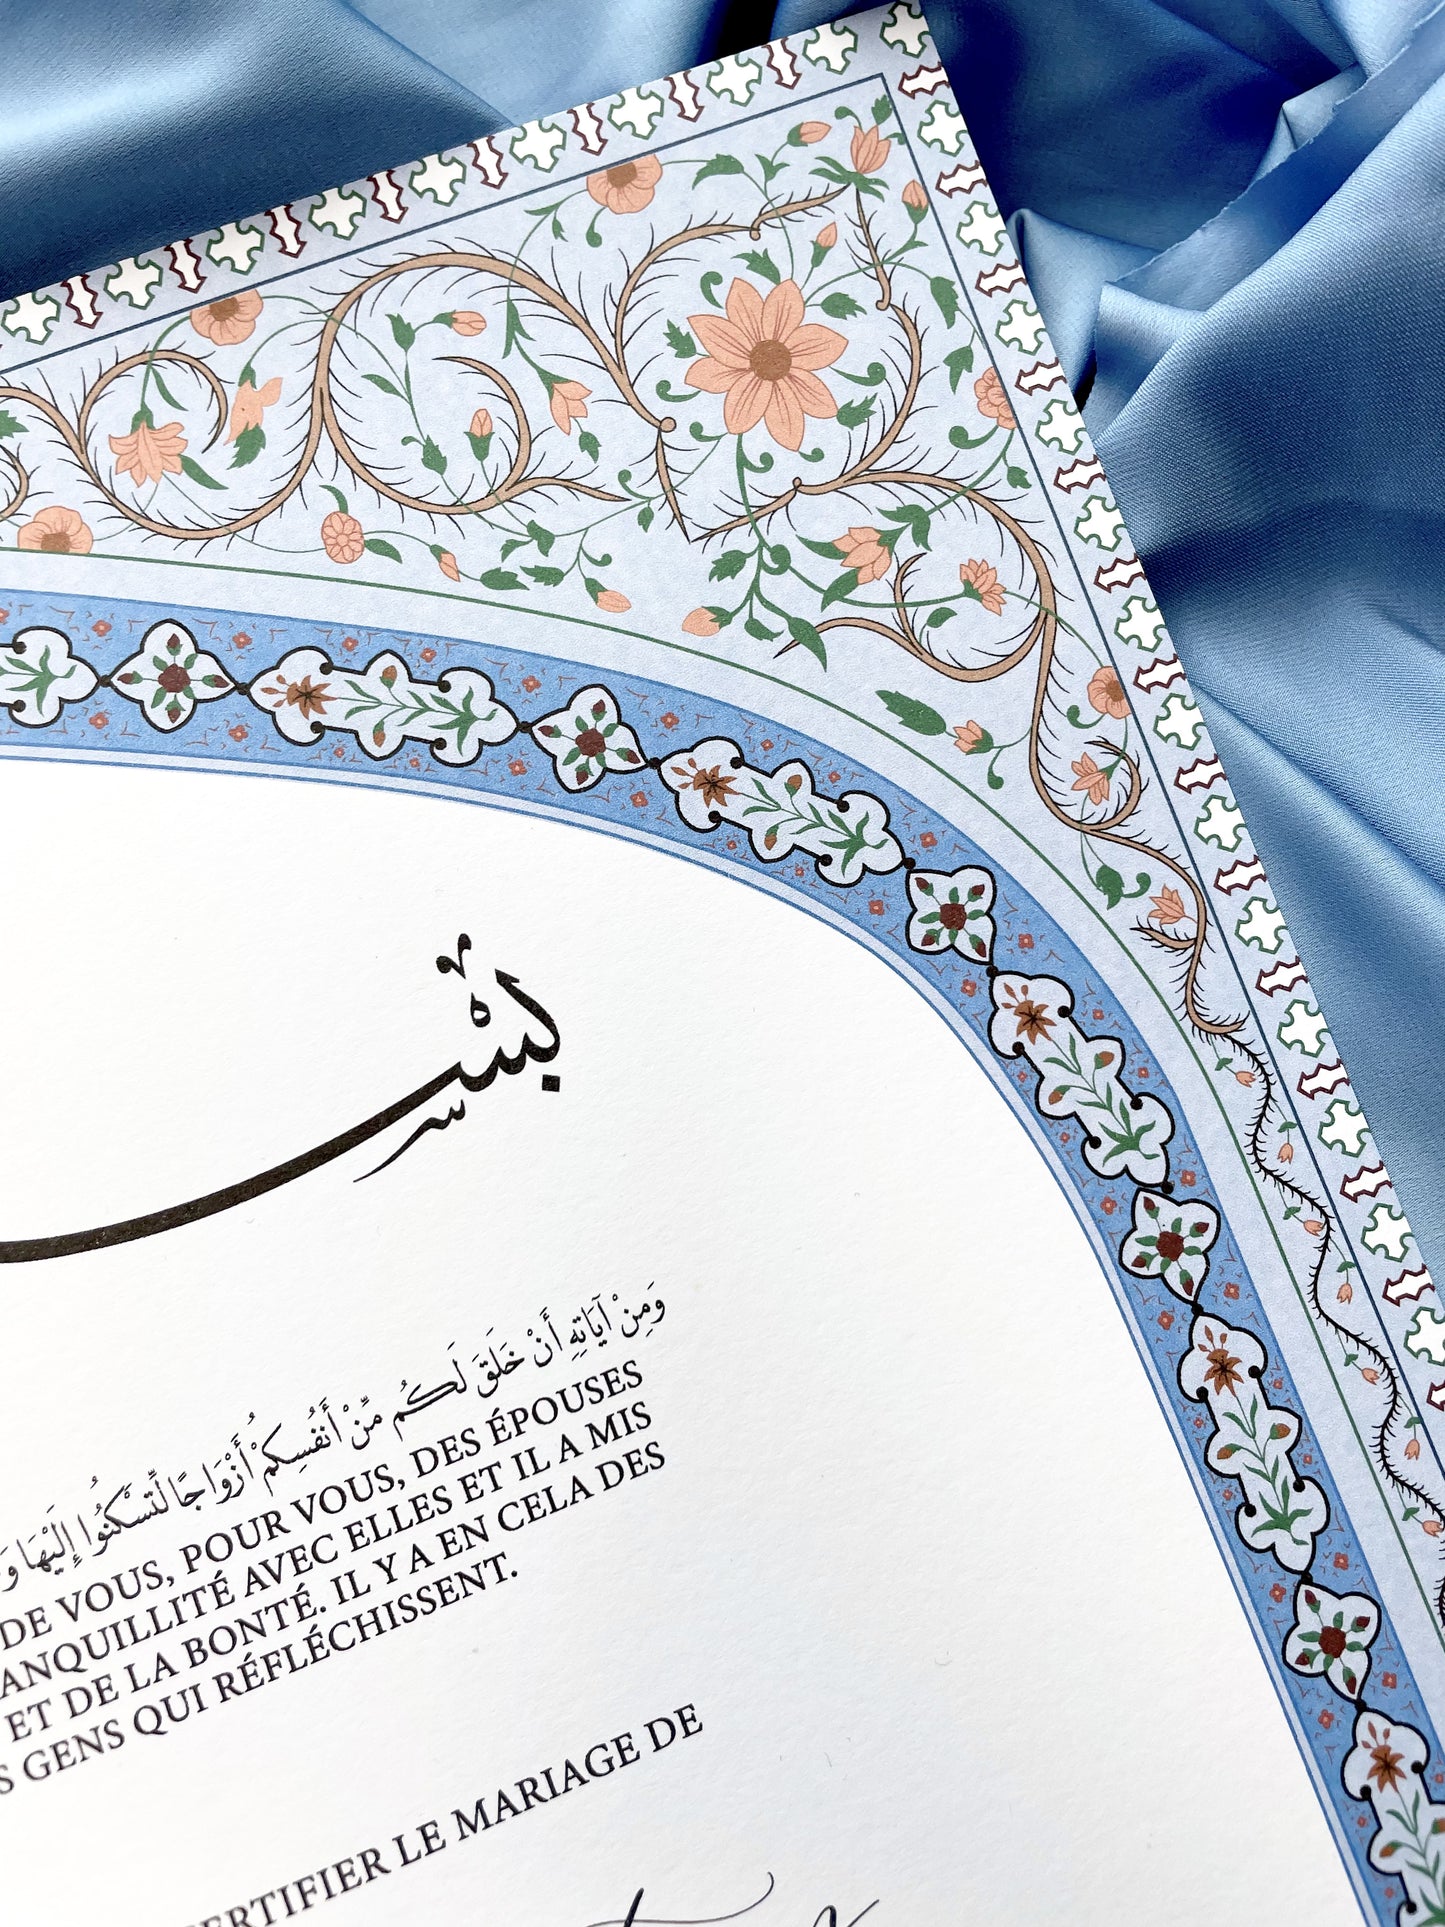 بِسْـ
وَمِنْ آيَاتِهِ أَنْ خَلَقَ لَكُم مِّنْ أَنفُسِكُمْ أَزْوَاجًا لِّتَسْكُنُوا إِلَيْهَا وَ
DE VOUS, POUR VOUS, DES ÉPOUSES
ANQUILLITÉ AVEC ELLES ET IL A MIS
ET DE LA BONTÉ. IL Y A EN CELA DES
S GENS QUI RÉFLÉCHISSENT.
ERTIFIER LE MARIAGE DE